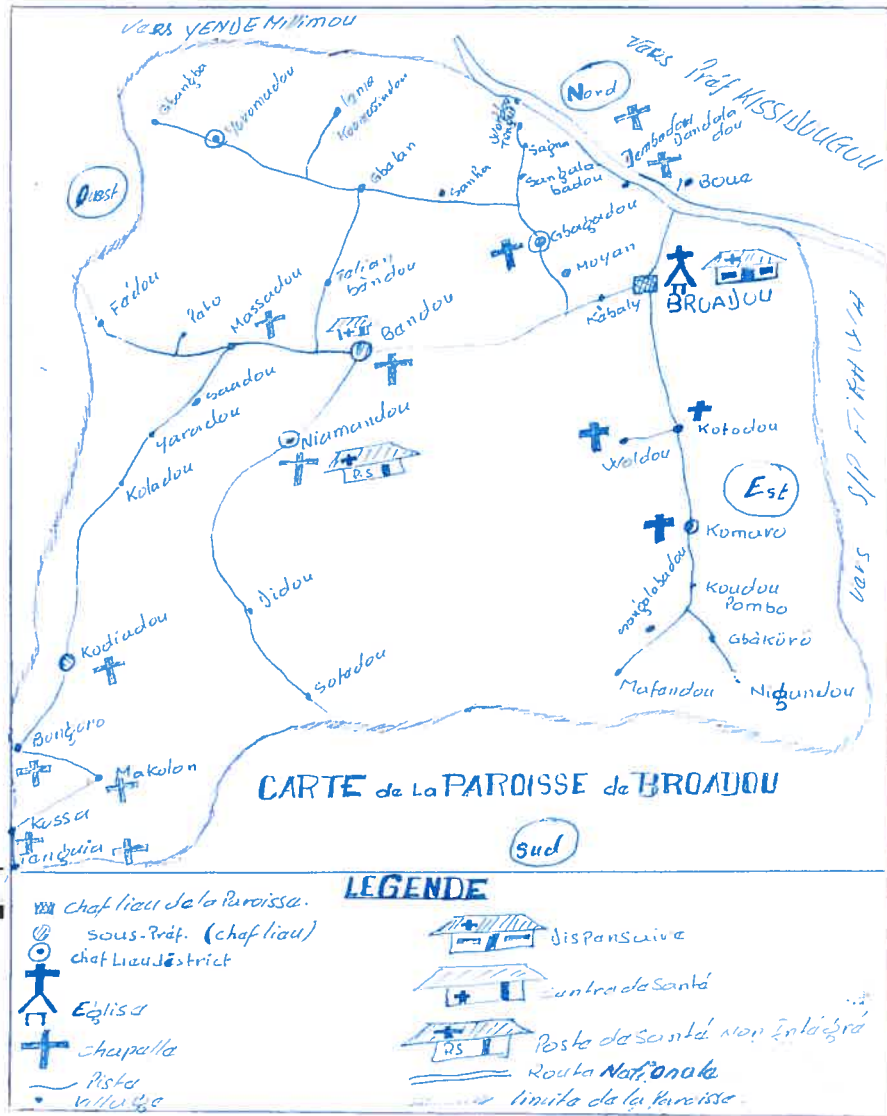 Vers YENDE Millimou
Vers Préf KISSIDOUGOU
Nord
Gbangba
Yoromadou
Ignie
Gbatan
Sanka
Sagna
Sangala
badou
Dembadou
Dandala
dou
Boue
Ouest
Gbagbadou
Moyan
Kabaly
BROADOU
Talian
bandou
Fadou
Pato
Massadou
Bandou
Saadou
Yaradou
Koladou
Niamandou
P.S
Woldou
Kotodou
Est
Komaro
vers S/P FIRAWA
Songalobadou
Koudou
Pombo
Gbàkürö
Mafandou
Nigundou
Didou
Sofadou
Kodiadou
Bunguro
Makolon
Kossa
Tanguia
CARTE de La PAROISSE de BROADOU
Sud
LEGENDE
chef lieu de la Paroisse.
Sous-Préf. (chef lieu)
chef Lieu district
Eglise
chapelle
Piste
village
dispensaire
centre de Santé
P.S
Poste de Santé Non Intégré
Route Nationale
limite de la Paroisse.